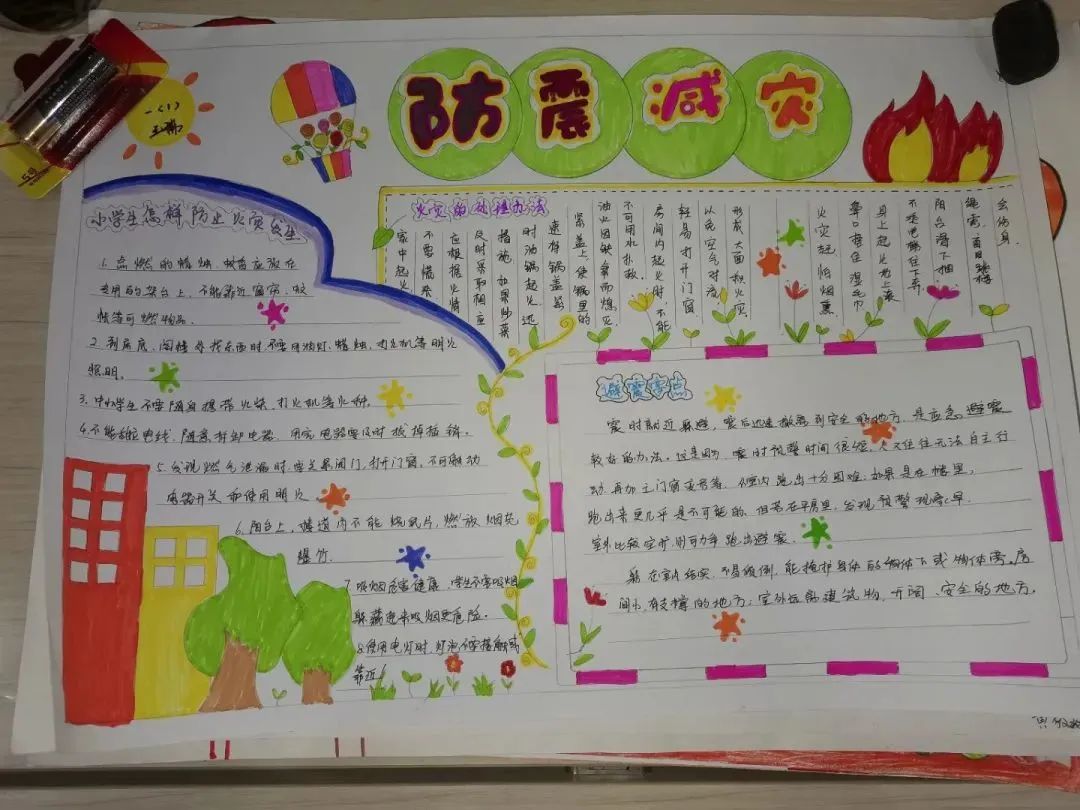 防震减灾
一（1）
5号
小学生怎样防止火灾发生
1.点燃的蜡烛、蚊香应放在
专用的架台上，不能靠近窗帘、蚊
帐等可燃物品。
2.到床底、阁楼处找东西时不要用油灯、蜡烛、打火机等明火
照明。
3.中小学生不要随身携带火柴、打火机等火种。
4.不能乱拉电线，随意拆卸电器，用完电器要及时拔掉插销。
5.发现燃气泄漏时，要关紧阀门，打开门窗，不可触动
电器开关和使用明火
6.阳台上、楼道内不能烧纸片，燃放烟花
爆竹.
7.吸烟危害健康，学生不要吸烟
躲藏起来吸烟更危险。
8.使用电灯时，灯泡不要接触或
靠近
火灾的处理办法
家中起火
不要慌张
应根据火情
及时采取相应
措施，如果炒菜
时油锅起火，迅
速将锅盖
紧盖上，使锅里的
油火因缺氧而熄灭
不可用水扑救。
房间内起火时，不能
轻易打开门窗
以免空气对流
形成大面积火灾
火灾起怕烟熏
鼻口捂住湿毛巾
身上起火地上滚
不乘电梯往下奔
阳台滑下捆
绳索，盲目跳楼
会伤身.
避震要点
震时就近躲避，震后迅速撤离到安全的地方，是应急避震
较好的办法。这是因为，震时预警时间很短，人又往往无法自主行
动，再加之门窗变形等，从室内跑出十分困难；如果是在楼里，
跑出来更几乎是不可能的。但若在平房里，发现预警现象早，
室外比较空旷，则可力争跑出避震.
躲在室内结实、不易倾倒、能掩护身体的物体下或物体旁，房
间小、有支撑的地方；室外远离建筑物，开阔、安全的地方。